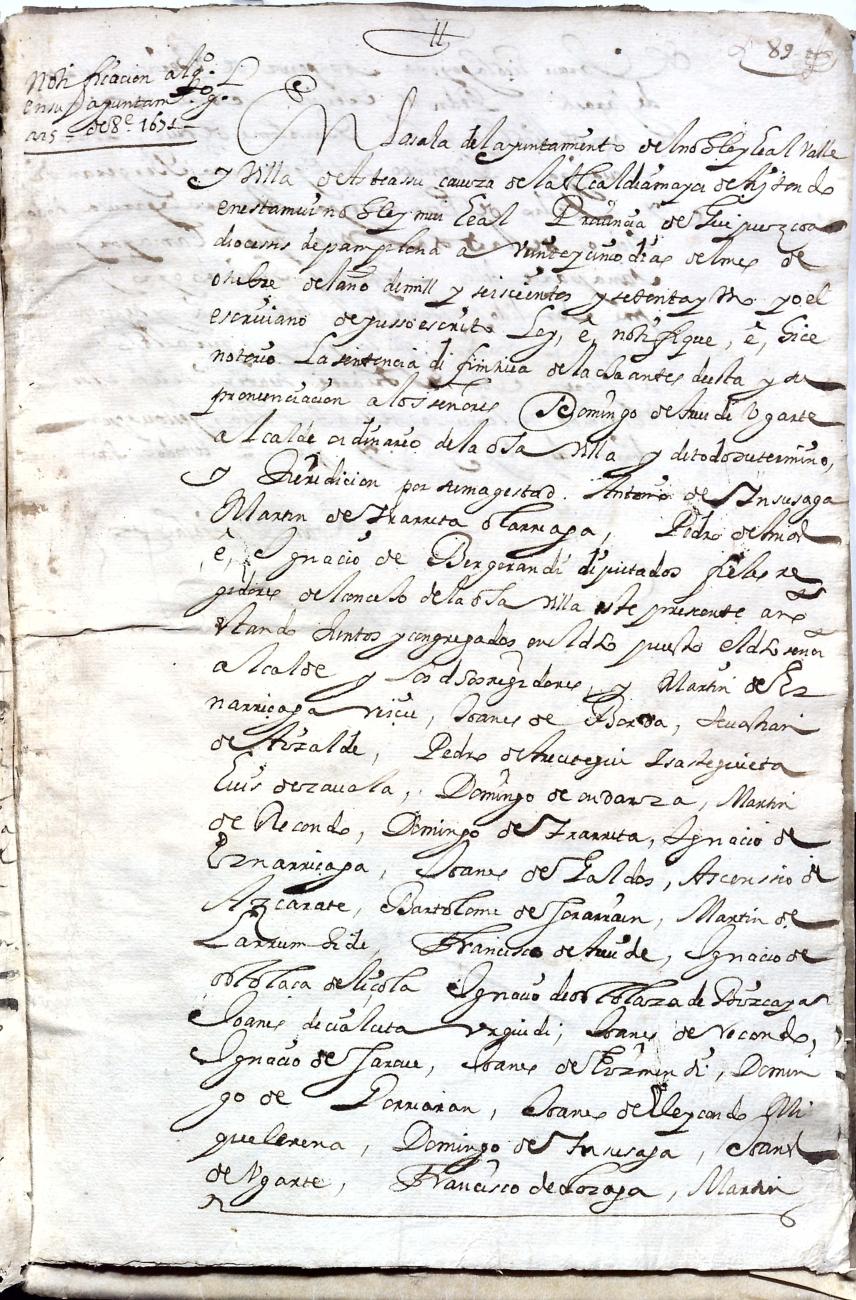 89
Notificacion al
en su ayuntam.to
a 25 de 8.e 1671
En la sala del ayuntamiento de la noble y leal Valle
y Villa de Asteassu caveza de la Alcaldia mayor de Aiztondo
en esta mui noble y mui leal Provincia de Guipuzcoa
diocesis de pampelona a veinte y cinco dias del mes de
otubre del año de mill y seiscientos y setenta y uno yo el
escriviano de yusso escrito Ley, e, notifique, e, hice
notorio La sentencia difinitiva de la otra antes desta y su
pronunciacion a los señores Domingo de Ugarte
alcalde ordinario de la dha villa y de todo su termino,
y Juridicion por su magestad. Antonio de Insusaga
Martin de Irarreta olarriaga, Pedro de
e, Ignacio de Bergarandi diputados fieles re
gidores del concejo de la dha villa este presente año
estando Juntos y congregados en el dho puesto el dho señor
alcalde y los dhos regidores, y Martin de Ez
narriçaga, Joanes de Borda,
de Alzalde, Pedro de
Luis de zavala, Domingo de ondarza, Martin
de Recondo, Domingo de Irarreta, Ignacio de
Eznarriçaga, Joanes de Galdos, Ascensio de
Azcarate, Bartolome de Sorarrain, Martin de
Larrumbide, Francisco de, Ignacio de
de Ignacio de
Joanes de, Joanes de recondo,
Ignacio de, Joanes de, Domin
go de, Joanes de Leycondo Mi
quel erena, Domingo de Insusaga, Joanes
de Ugarte, Francisco de, Martin